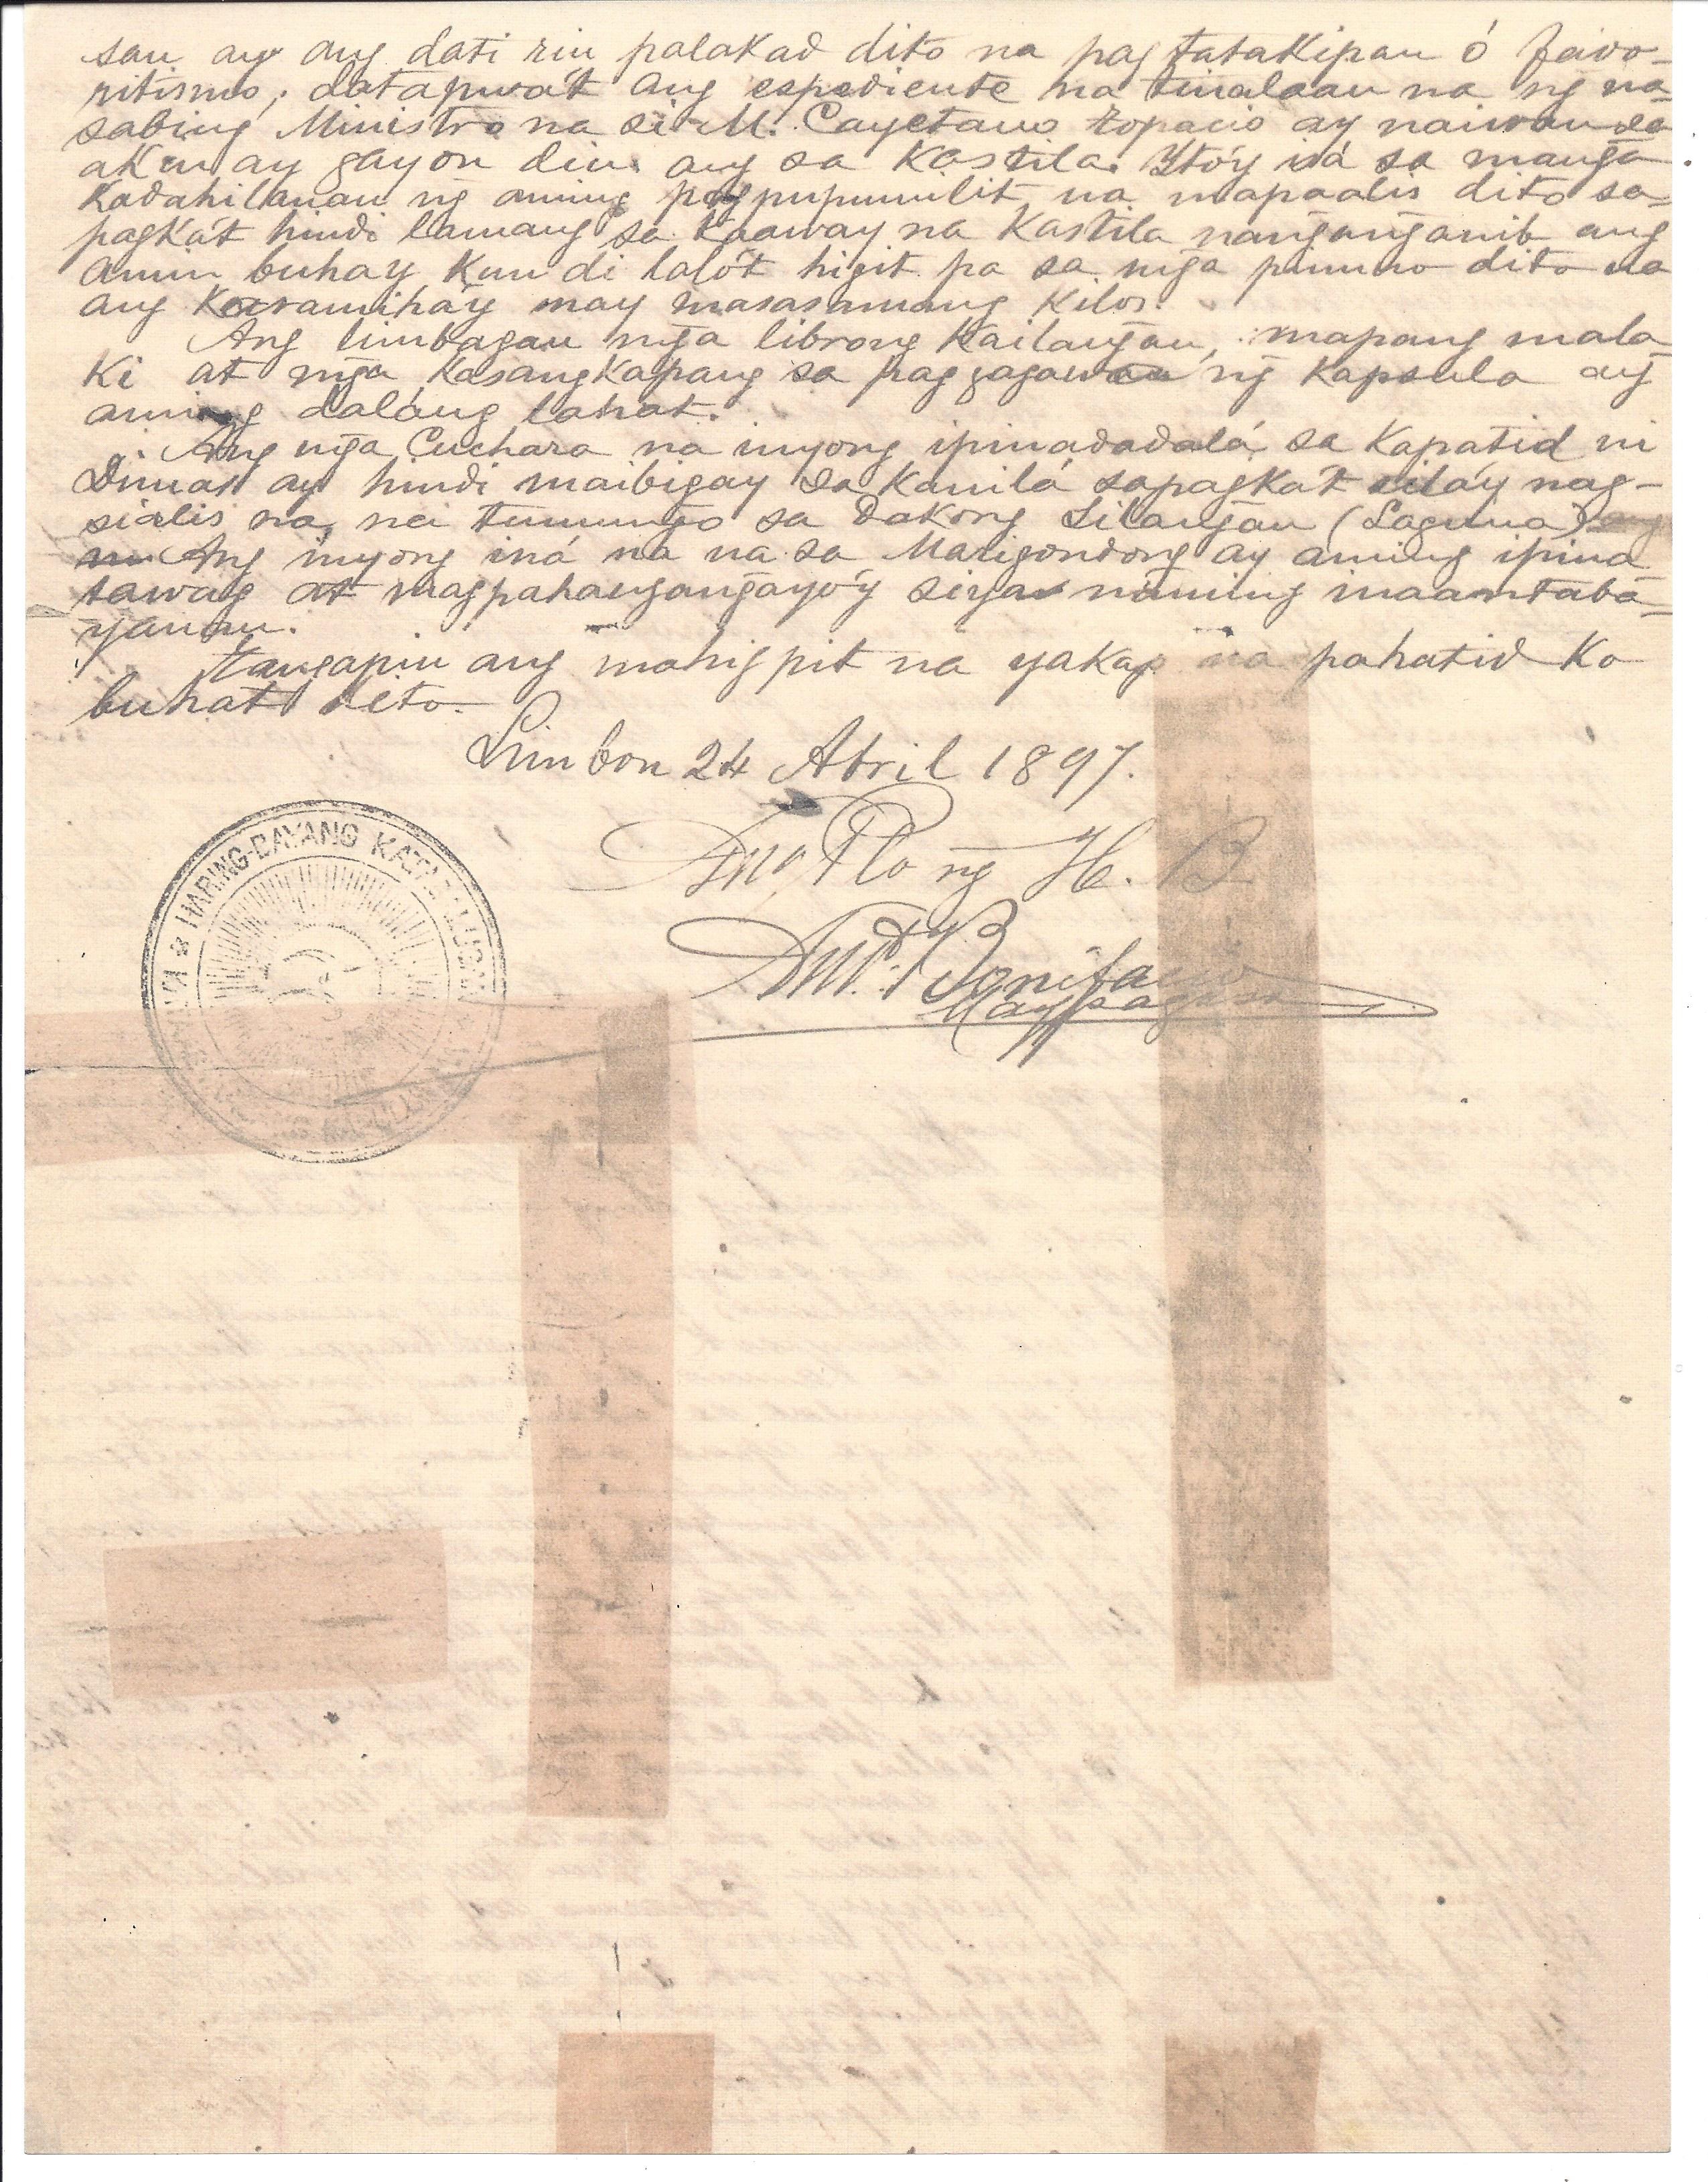 san ay ang dati rin palakad dito na pag tatakipan ó favo-
ritismo; datapwát ang espediente na tinalaan na ng na-
sabing Ministro na si M. Cayetano Topacio ay naiwan sa
akin ay gayon din ang sa Kastila. Ytóy isá sa manga
Kadahilanan ng aming pagpupumilit na mapaalis dito sa-
pagkát hindi lamang sa Kaaway na Kastila nanganganib ang
amin buhay Kun di lalót higit pa sa mga puno dito na
ang Karamihay may masasamang Kilos.
Ang limbagan mga librong Kailangan, mapang mala
Ki at mga Kasangkapang sa paggagawan ng Kapsula ay
aming daláng lahat.
Ang mga Cuchara na inyong ipinadadalá sa Kapatid ni
Dimas ay hindi maibigay sa Kanilá sapagkát siláy nag-
sialis na, na tumungo sa dakong Silangan (Laguna)
Ang inyong iná na na sa Marigondong ay aming ipina
tawag at magpahangangayóy siyang aming inaantaba-
yanan.
Tangapin ang mahigpit na yakap na pahatid Ko
buhat dito.
Limbon 24 Abril 1897.
Ang Plo ng H. B
HARING-BAYANG KATAGALUGAN
And. Bonifacio
Maypagasa